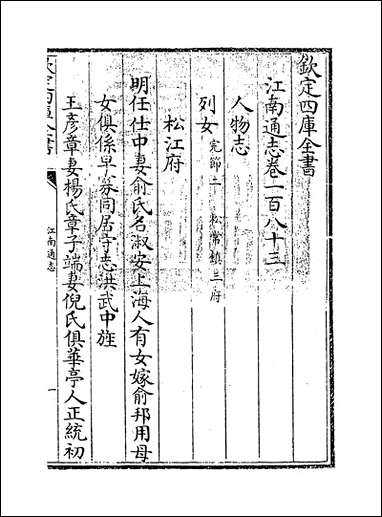 欽定四庫全書
江南通志卷一百八十三
人物志
列女完節二 松常鎮三府
松江府
明任仕中妻俞氏名淑安上海人有女嫁俞邦用母
女俱係早寡同居守志洪武中旌
王彥章妻楊氏章子端妻倪氏俱華亭人正統初
欽定四庫全書
江南通志
一